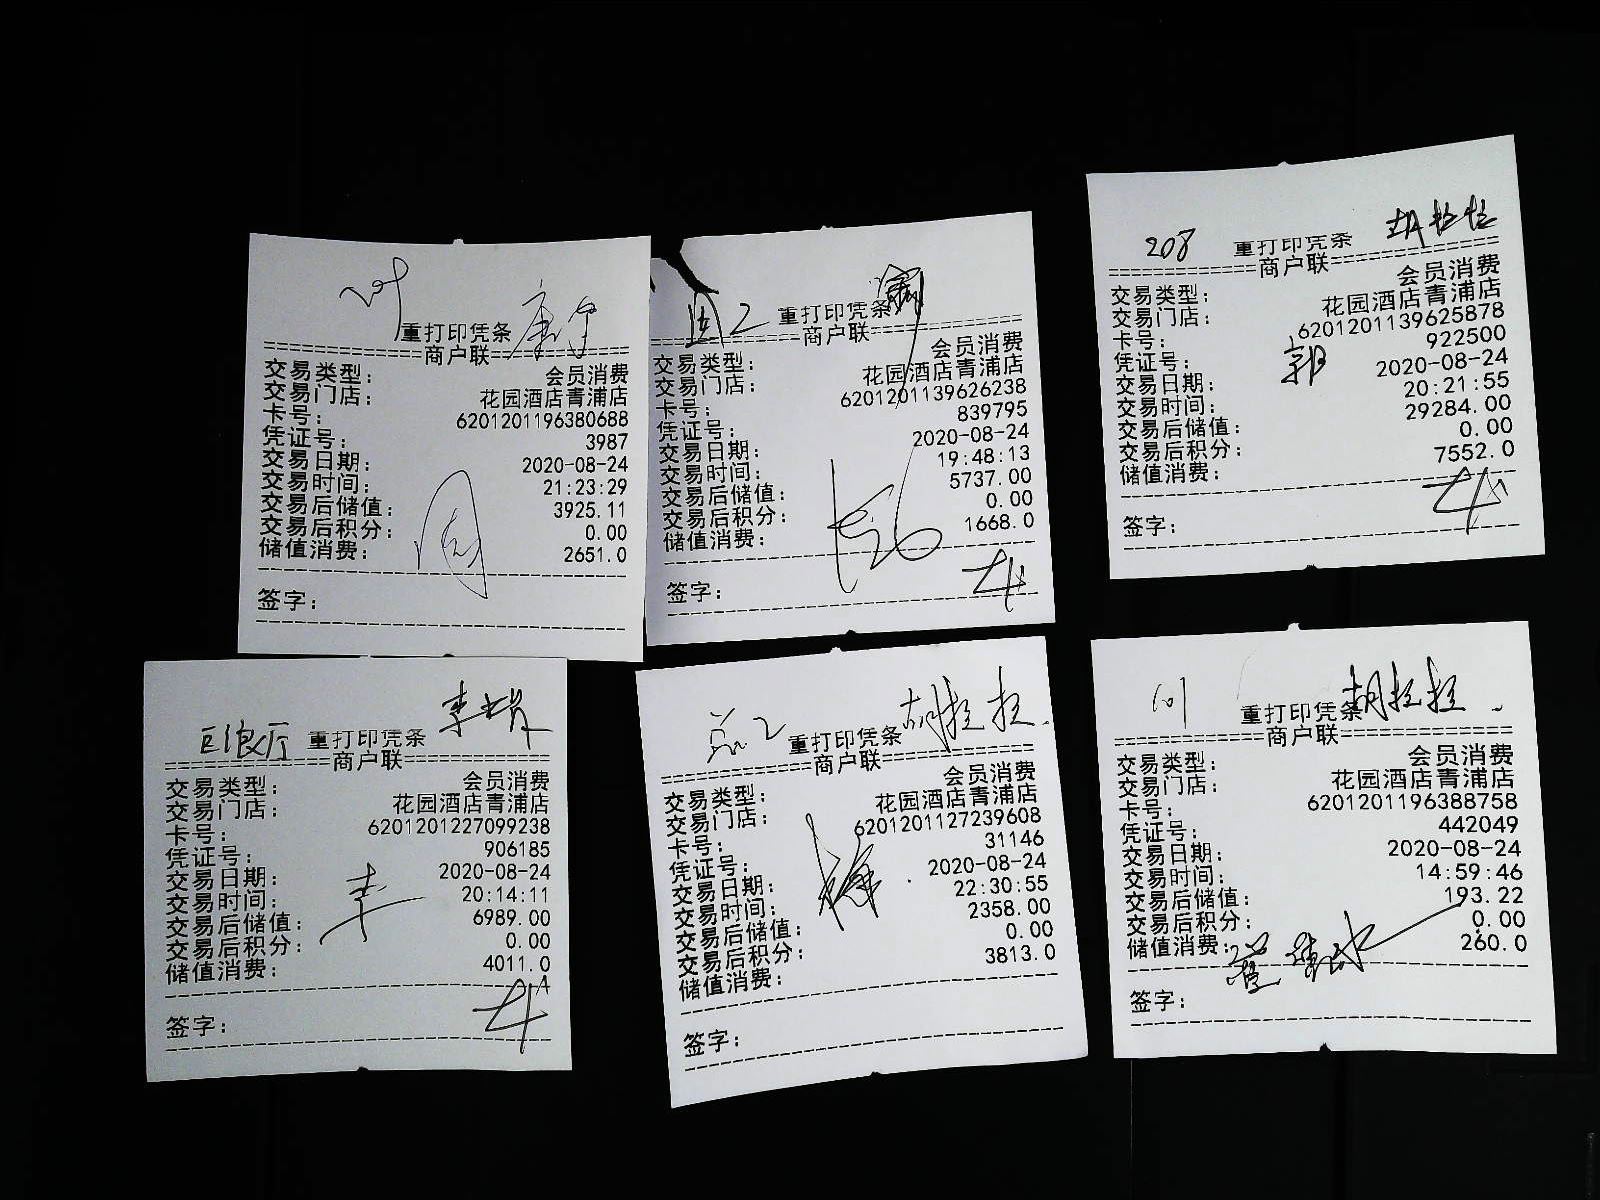 重打印凭条
商户联
交易类型： 会员消费
交易门店： 花园酒店青浦店
卡号： 6201201196380688
凭证号： 3987
交易日期： 2020-08-24
交易时间： 21:23:29
交易后储值： 3925.11
交易后积分： 0.00
储值消费： 2651.0
签字：
重打印凭条
商户联
交易类型： 会员消费
交易门店： 花园酒店青浦店
卡号： 6201201139626238
凭证号： 839795
交易日期： 2020-08-24
交易时间： 19:48:13
交易后储值： 5737.00
交易后积分： 0.00
储值消费： 1668.0
签字：
208 重打印凭条 胡拉拉
商户联
交易类型： 会员消费
交易门店： 花园酒店青浦店
卡号： 6201201139625878
凭证号： 922500
郭
交易日期： 2020-08-24
交易时间： 20:21:55
交易后储值： 29284.00
交易后积分： 0.00
储值消费： 7552.0
签字：
巨浪厅 重打印凭条
商户联
交易类型： 会员消费
交易门店： 花园酒店青浦店
卡号： 6201201227099238
凭证号： 906185
交易日期： 2020-08-24
交易时间： 20:14:11
交易后储值： 6989.00
交易后积分： 0.00
储值消费： 4011.0
签字：
重打印凭条 胡拉拉
商户联
交易类型： 会员消费
交易门店： 花园酒店青浦店
卡号： 6201201127239608
凭证号： 31146
交易日期： 2020-08-24
交易时间： 22:30:55
交易后储值： 2358.00
交易后积分： 0.00
储值消费： 3813.0
签字：
101 重打印凭条 胡拉拉
商户联
交易类型： 会员消费
交易门店： 花园酒店青浦店
卡号： 6201201196388758
凭证号： 442049
交易日期： 2020-08-24
交易时间： 14:59:46
交易后储值： 193.22
交易后积分： 0.00
储值消费： 260.0
签字：